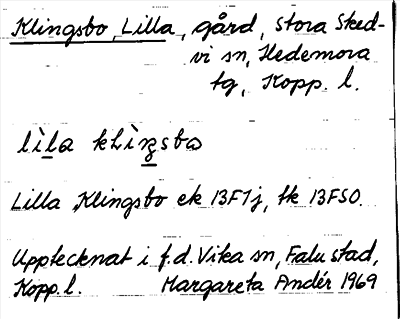 Klingsbo, Lilla, gård, Stora Sked-
vi sn, Hedemora
tg, Kopp. l.
lìla
Lilla Klingsbo ek 13F7j, tk 13FSO.
Upptecknat i f.d. Vika sn, Falu stad,
Kopp. l. Margareta Andér 1969